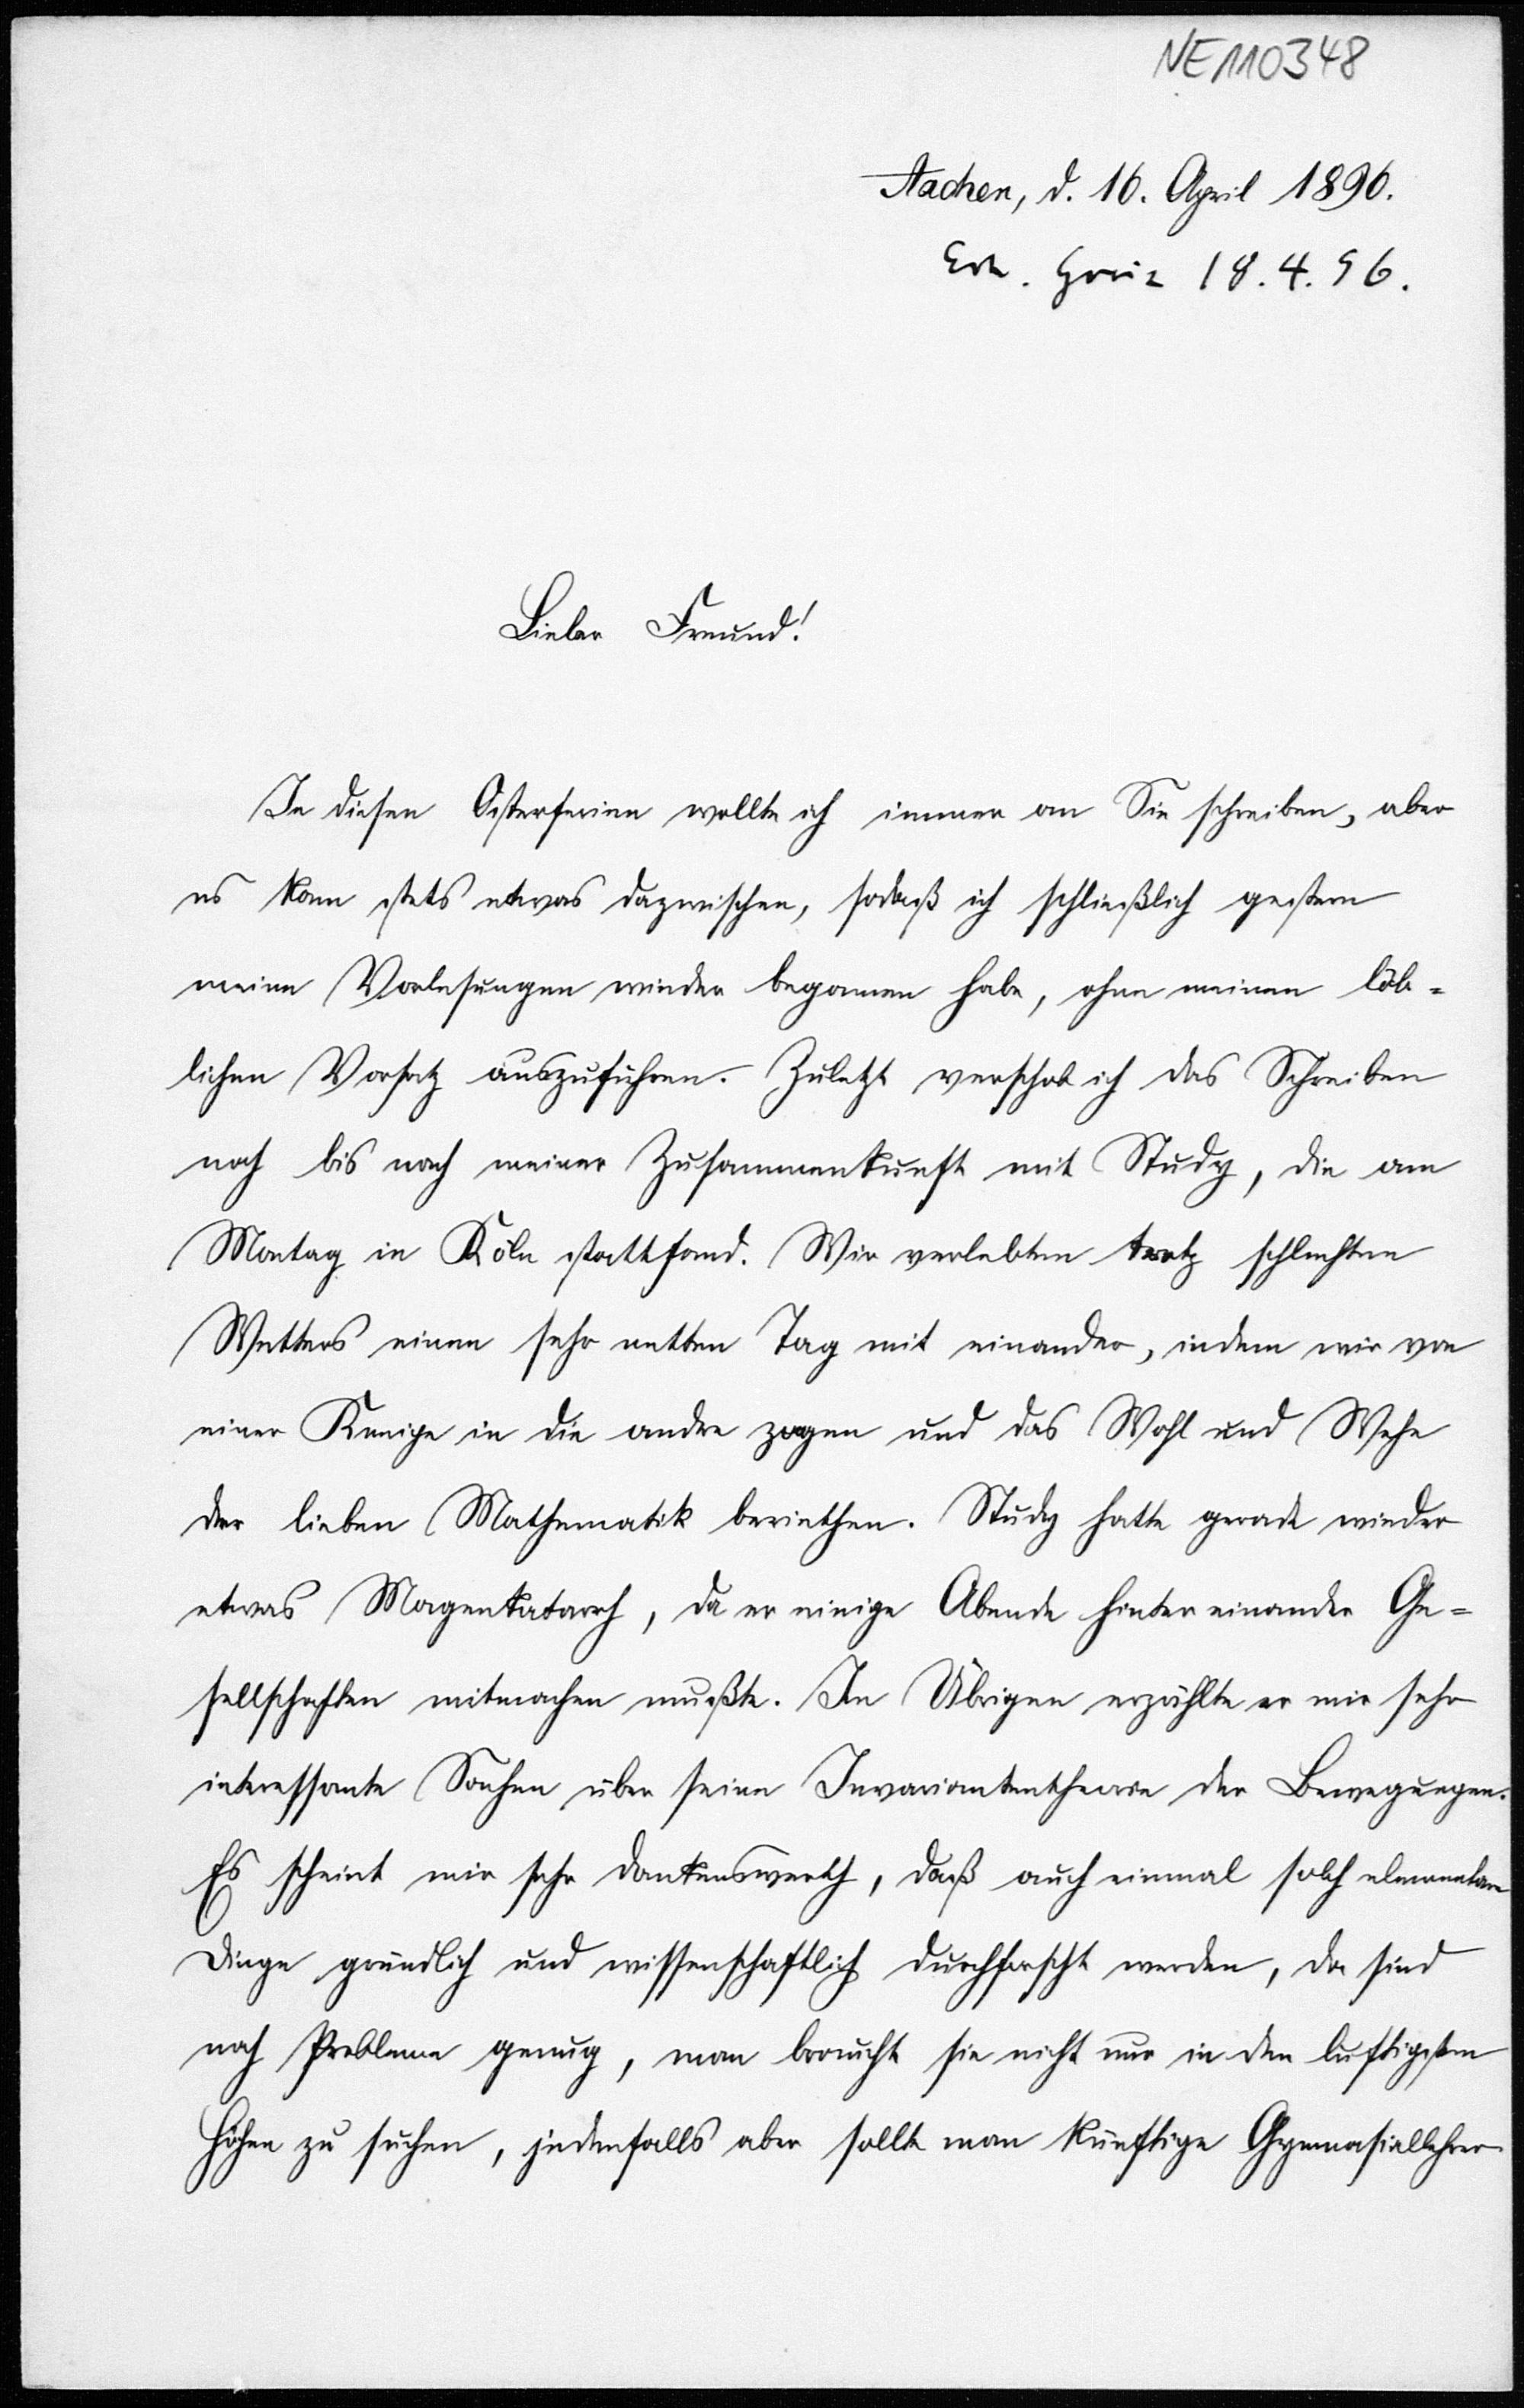 NE110348
Aachen, d. 16. April 1896.
Erh. Greiz 18.4.96.
Lieber Freund!
In diesen Osterferien wollte ich immer an Sie schreiben, aber
es kam stets etwas dazwischen, sodaß ich schließlich gestern
meine Vorlesungen wieder begonnen habe, ohne meinen löb-
lichen Vorsatz auszuführen. Zuletzt verschob ich das Schreiben
noch bis nach meiner Zusammenkunft mit Study, die am
Montag in Köln stattfand. Wir verlebten trotz schlechten
Wetters einen sehr netten Tag mit einander, indem wir von
einer Kneipe in die andre zogen und das Wohl und Wehe
der lieben Mathematik beriethen. Study hatte gerade wieder
etwas Magenkatarrh, da er einige Abende hinter einander Ge-
sellschaften mitmachen mußte. Im Übrigen erzählte er mir sehr
interessante Sachen über seine Invariantentheorie der Bewegungen.
Es scheint mir sehr dankenswerth, daß auch einmal solch elementare
Dinge gründlich und wissenschaftlich durchforscht werden, da sind
noch Probleme genug, man braucht sie nicht nur in den luftigsten
Höhen zu suchen, jedenfalls aber sollte man künftige Gymnasiallehrer